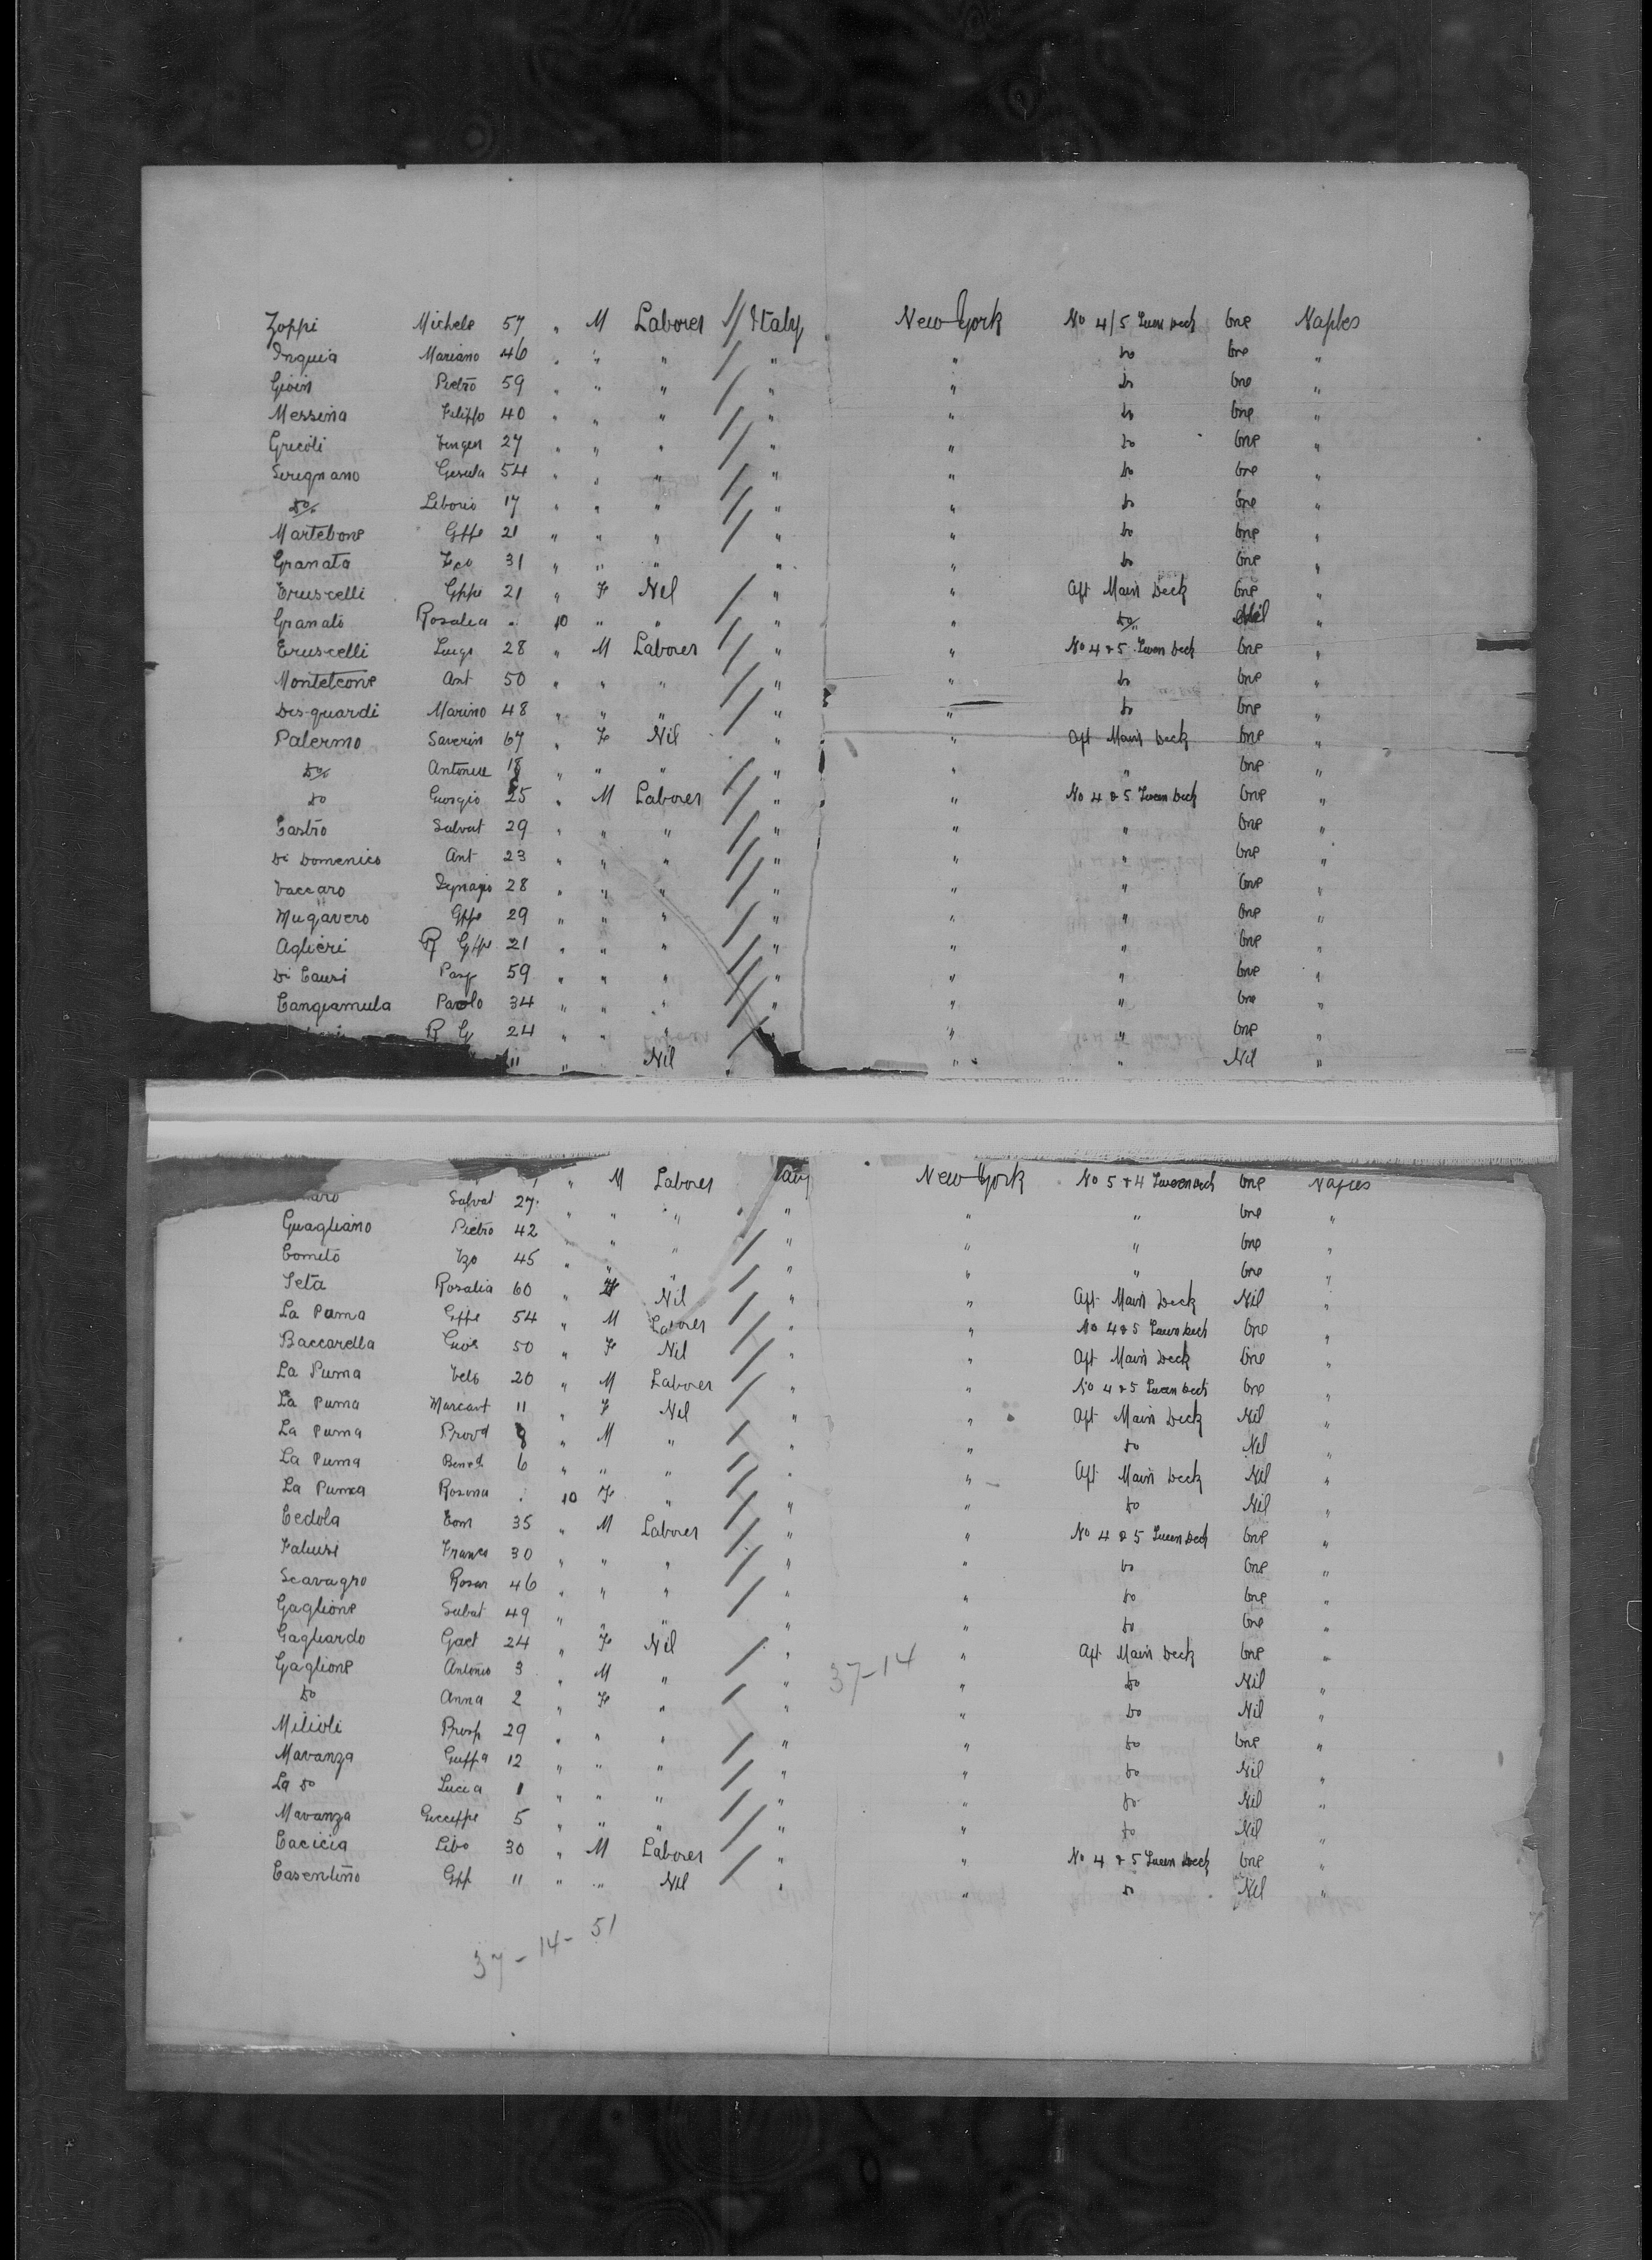 Zoppi Michele 57 " M Laborer Italy New York No 4/5 Tween Deck One Naples
Inguia Mariano 46 " " " " " do One "
Gioin Pietro 59 " " " " " do One "
Messina Filippo 40 " " " " " do One "
Gricoli 27 " " " " " do One "
Serignano 54 " " " " " do One "
do/. Liborio 17 " " " " " do One "
Martebone Gppe 21 " " " " " do One "
Granata Fco 31 " " " " " do One "
Cruscelli Gppe 21 " F Nil " " Aft Main Deck One "
Granato Rosalia " 10 " " " " do/. Nil "
Cruscelli Luigi 28 " M Laborer " " No 4 & 5 Tween Deck One "
Monteleone Ant 50 " " " " " do One "
Desguardi Marino 48 " " " " " do One "
Palermo Saverin 67 " F Nil " " Aft Main Deck One "
do/. 18 " " " " " " One "
do Giorgio 25 " M Laborer " " No 4 & 5 Tween Deck One "
Castro Salvat 29 " " " " " " One "
Di Domenico Ant 23 " " " " " " One "
Vaccaro Ignazio 28 " " " " " " One "
Mugavero Gppe 29 " " " " " " One "
Aglieri R Gppe 21 " " " " " " One "
Di Cauri Pasq 59 " " " " " " One "
Cangiamula Paolo 34 " " " " " " One "
R G 24 " " " " " One "
11 " Nil " " Nil "
" M Laborer New York No 5 & 4 Tween Deck One Naples
Salvat 27 " " " " " " One "
Guagliano Pietro 42 " " " " " " One "
Cometo 45 " " " " " " One "
Seta Rosalia 60 " F Nil " " Aft Main Deck Nil "
La Puma Gppe 54 " M Laborer " " No 4 & 5 Tween Deck One "
Baccarella 50 " F Nil " " Aft Main Deck One "
La Puma 20 " M Laborer " " No 4 & 5 Tween Deck One "
La Puma Marcant 11 " F Nil " " Aft Main Deck Nil "
La Puma Provd 8 " M " " " do Nil "
La Puma Bened. 6 " " " " " Aft Main Deck Nil "
La Puma Rosina " 10 F " " " do Nil "
Cedola Com 35 " M Laborer " " No 4 & 5 Tween Deck One "
Franco 30 " " " " " do One "
Scavagro Rosar 46 " " " " " do One "
Gaglione Salvat 49 " " " " " do One "
Gagliardo Gaet 24 " F Nil " " Aft Main Deck One "
Gaglione Antonio 3 " M " " 37-14 " do Nil "
do Anna 2 " F " " " do Nil "
Milioli Prosp 29 " " " " " do One "
Mavanza Guppa 12 " " " " " do Nil "
La do Lucia 1 " " " " " do Nil "
Mavanza Gucceppe 5 " " " " " do Nil "
Cacicia Libo 30 " M Laborer " " No 4 & 5 Tween Deck One "
Casentino Gpp 11 " " Nil " " do Nil "
37-14-51